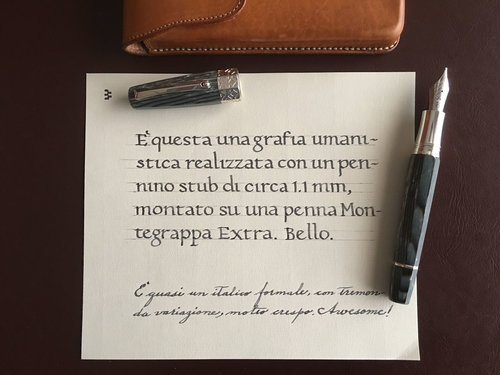 E' questa una grafia umani-
stica realizzata con un pen-
nino stub di circa 1.1 mm,
montato su una penna Mon-
tegrappa Extra. Bello.
E' quasi un italico formale, con tremen-
da variazione, molto crespo. Awesome!